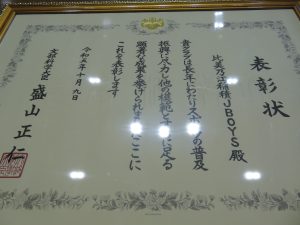 表彰状
比美乃江相撲JBOYS殿
貴クラブは長年にわたりスポーツの普及
振興に尽力し他の模範とするに足る
顕著な成果を挙げられましたここに
これを表彰します
令和五年十月九日
文部科学大臣 盛山正仁